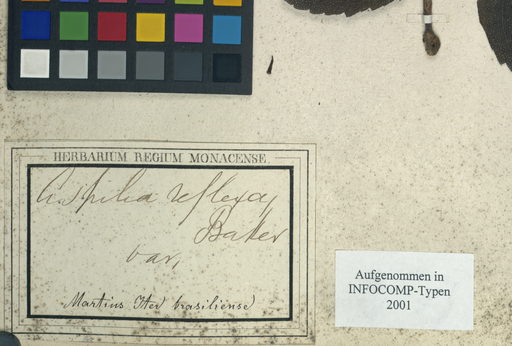 HERBARIUM REGIUM MONACENSE.
Aspilia reflexa
Baker
var,
Martius Iter brasiliense
Aufgenommen in
INFOCOMP-Typen
2001